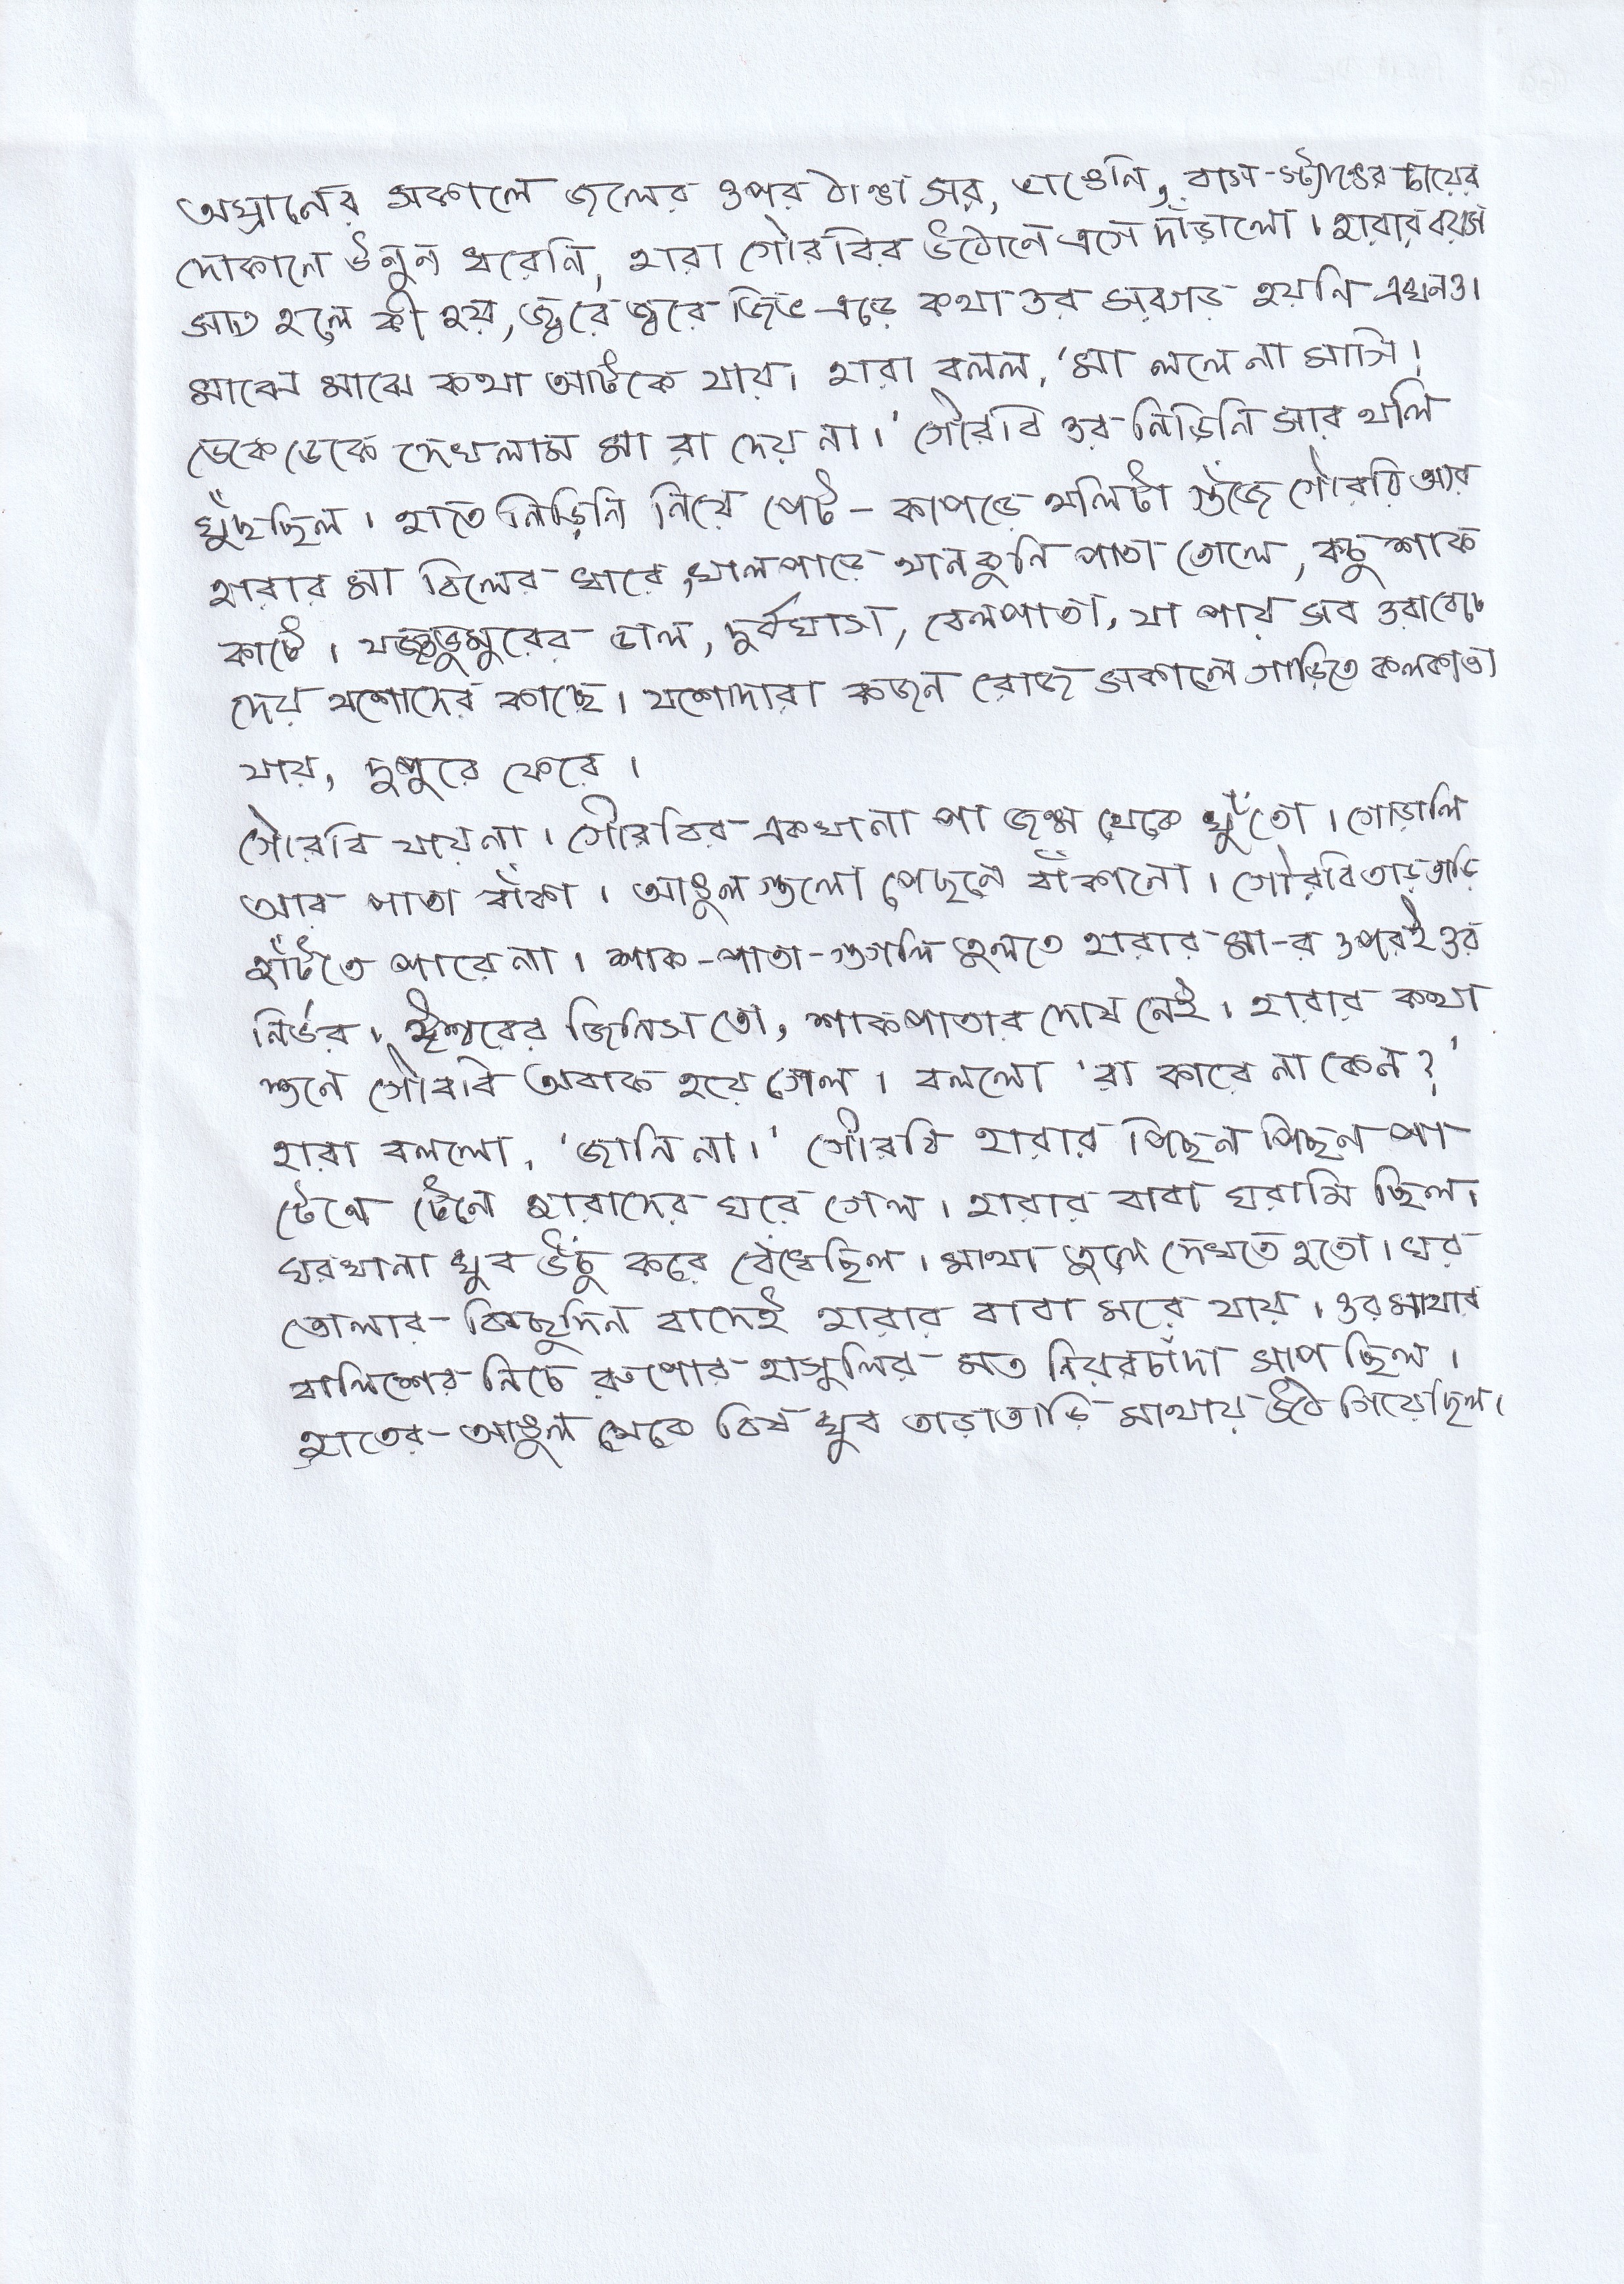 অঘ্রানের সকালে জলের ওপর ঠাণ্ডা সর, ভাঙেনি, বাস-স্ট্যাণ্ডের চায়ের
দোকানে উনুন ধরেনি, হারা গৌরবির উঠোনে এসে দাঁড়ালো। হারার বয়স
সাত হলে কী হয়, জ্বরে জ্বরে জিভ এড়ে কথা ওর সরগড় হয়নি এখনও।
মাঝে মাঝে কথা আটকে যায়। হারা বলল, 'মা ললে না মাসি!
ডেকে ডেকে দেখলাম মা রা দেয় না।' গৌরবি ওর নিড়িনি আর থলি
খুঁছছিল। হাতে নিড়িনি নিয়ে পেট-কাপড়ে থলিটা গুঁজে গৌরবি আর
হারার মা বিলের ধারে, খালপাড়ে থানকুনি পাতা তোলে, কচু শাক
কাটে। যজ্ঞডুমুরের ডাল, দুর্বঘাস, বেলপাতা, যা পায় সব ওরা বেচে
দেয় যশোদের কাছে। যশোদারা কজন রোজ সকালে গাড়িতে কলকাতা
যায়, দুপুরে ফেরে।
গৌরবি যায় না। গৌরবির একখানা পা জন্ম থেকে খুঁতো। গোড়ালি
আর পাতা বাঁকা। আঙুল গুলো পেছনে বাঁকানো। গৌরবি তাড়াতাড়ি
হাঁটতে পারে না। শাক-পাতা-গুগলি তুলতে হারার মা-র ওপরই ওর
নির্ভর। ঈশ্বরের জিনিস তো, শাকপাতার দোষ নেই। হারার কথা
শুনে গৌরবি অবাক হয়ে গেল। বললো 'রা কারে না কেন?'
হারা বললো, 'জানি না।' গৌরবি হারার পিছন পিছন পা
টেনে টেনে হারাদের ঘরে গেল। হারার বাবা ঘরামি ছিল।
ঘরখানা খুব উঁচু করে বেঁধেছিল। মাথা তুলে দেখতে হতো। ঘর
তোলার কিছুদিন বাদেই হারার বাবা মরে যায়। ওর মাথার
বালিশের নিচে রুপোর হাসুলির মত নিয়রচাঁদা সাপ ছিল।
হাতের আঙুল থেকে বিষ খুব তাড়াতাড়ি মাথায় উঠে গিয়েছিল।